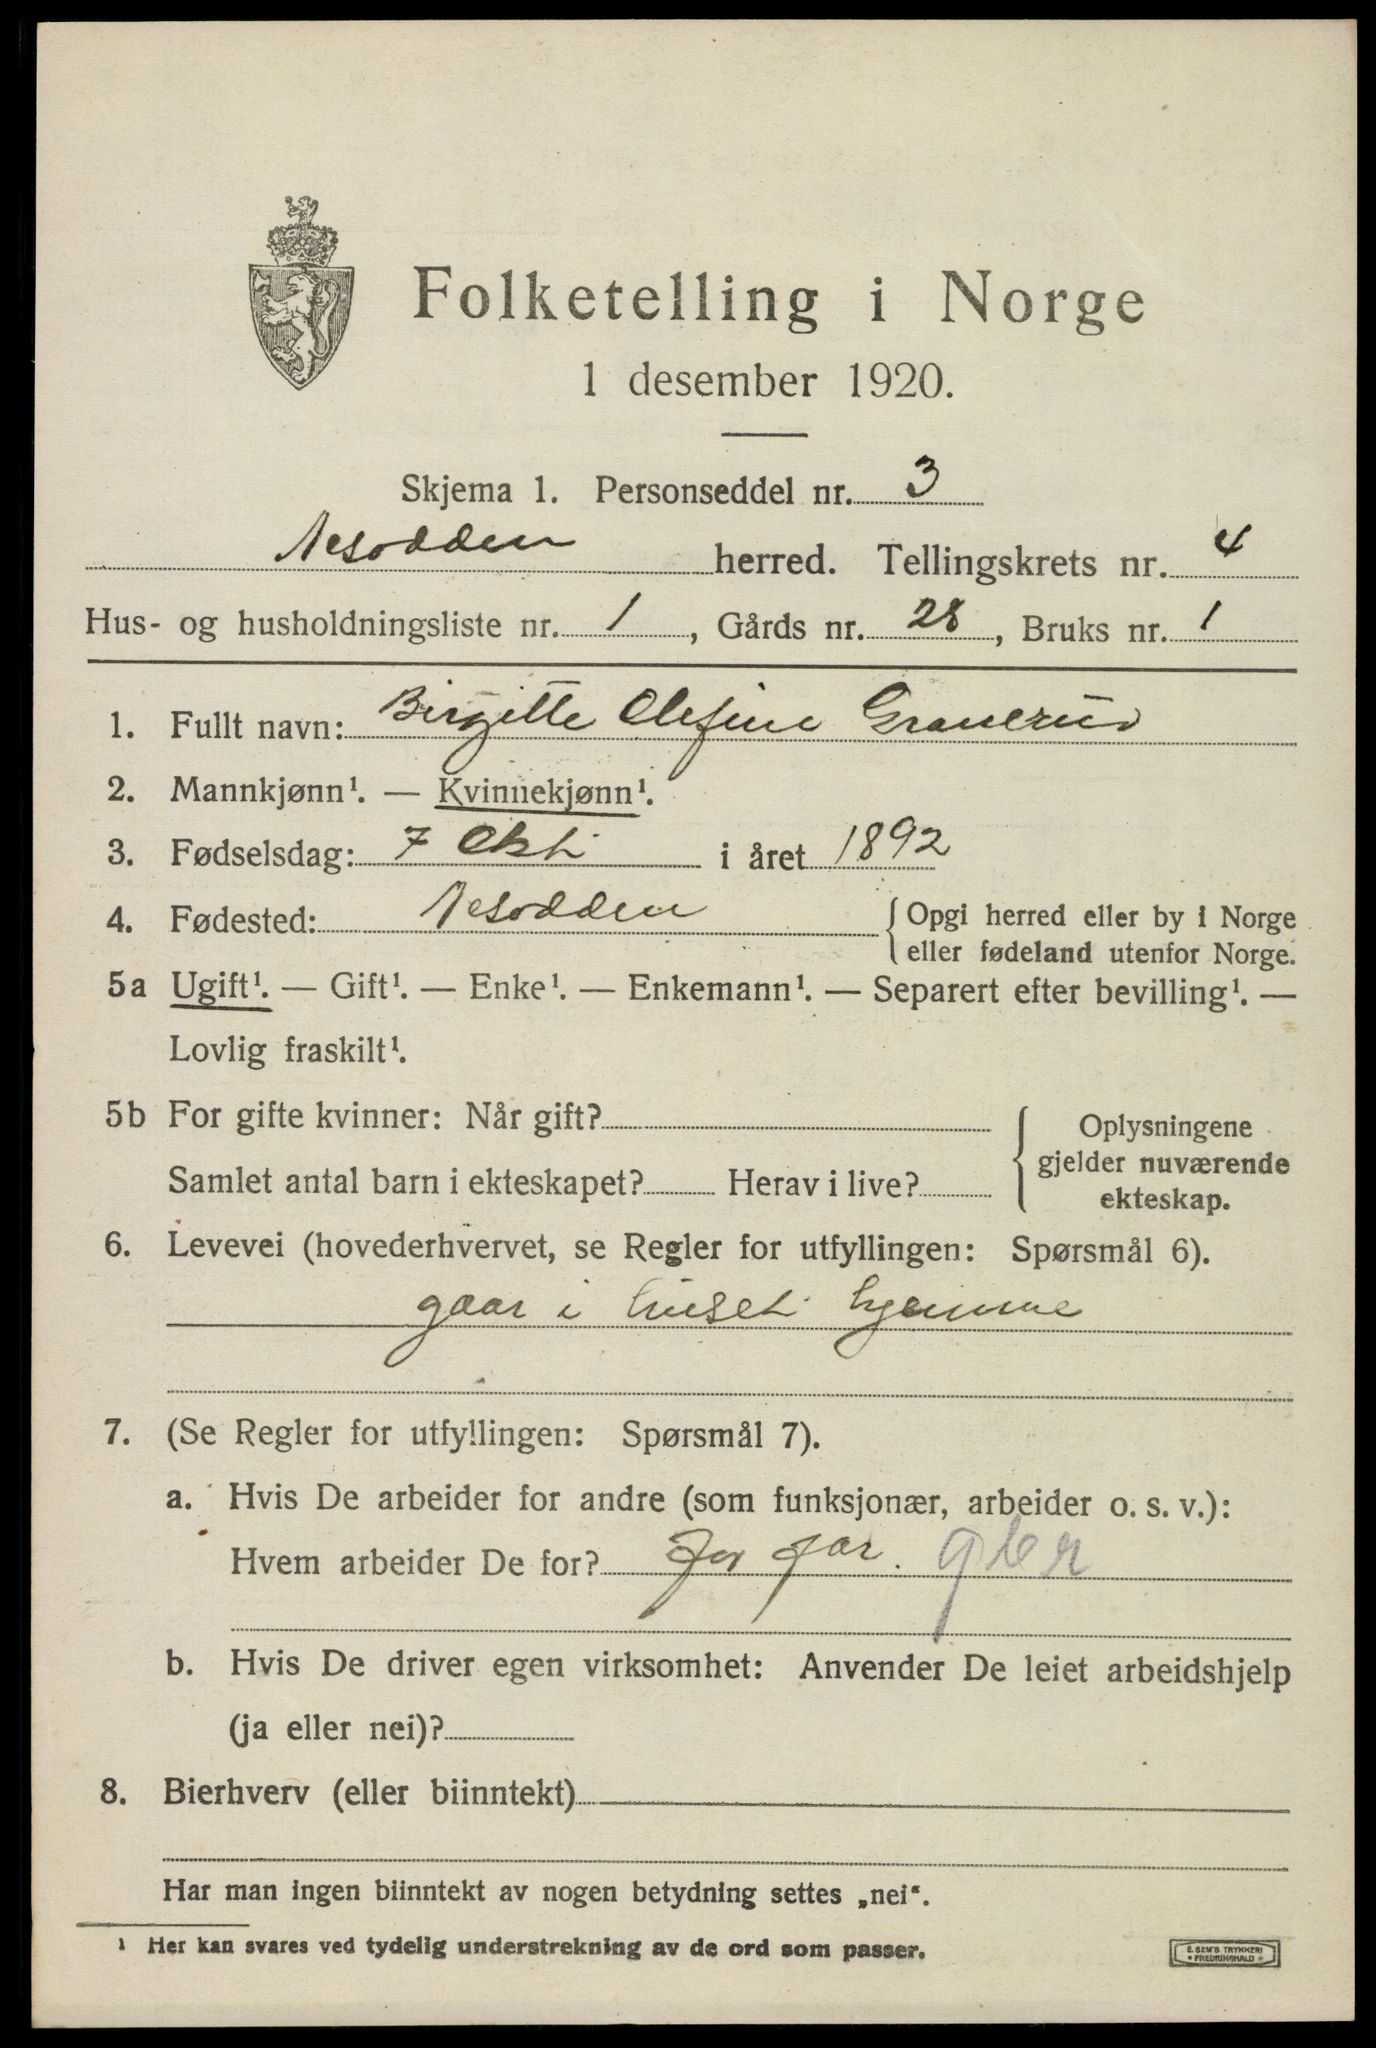 Folketelling i Norge
1 desember 1920.
Skjema 1. Personseddel nr. 3
Nesodden herred. Tellingskrets nr. 4
Hus- og husholdningsliste nr. 1, Gårds nr. 28, Bruks nr. 1
1. Fullt navn: Birgitte Olefine Granerud
2. Mannkjønn¹. — Kvinnekjønn¹.
3. Fødselsdag: 7 Okt i året 1892
4. Fødested: Nesodden { Opgi herred eller by i Norge
eller fødeland utenfor Norge.
5a Ugift¹. — Gift¹. — Enke¹. — Enkemann¹. — Separert efter bevilling¹. —
Lovlig fraskilt¹.
5b For gifte kvinner: Når gift?
Samlet antal barn i ekteskapet? Herav i live?
Oplysningene
gjelder nuværende
ekteskap.
6. Levevei (hovederhvervet, se Regler for utfyllingen: Spørsmål 6).
gaar i huset hjemme
7. (Se Regler for utfyllingen: Spørsmål 7).
a. Hvis De arbeider for andre (som funksjonær, arbeider o. s. v.):
Hvem arbeider De for? for far.
b. Hvis De driver egen virksomhet: Anvender De leiet arbeidshjelp
(ja eller nei)?
8. Bierhverv (eller biinntekt)
Har man ingen biinntekt av nogen betydning settes „nei“.
¹ Her kan svares ved tydelig understrekning av de ord som passer.
E. SEM'S TRYKKERI
* FREDRIKSHALD *